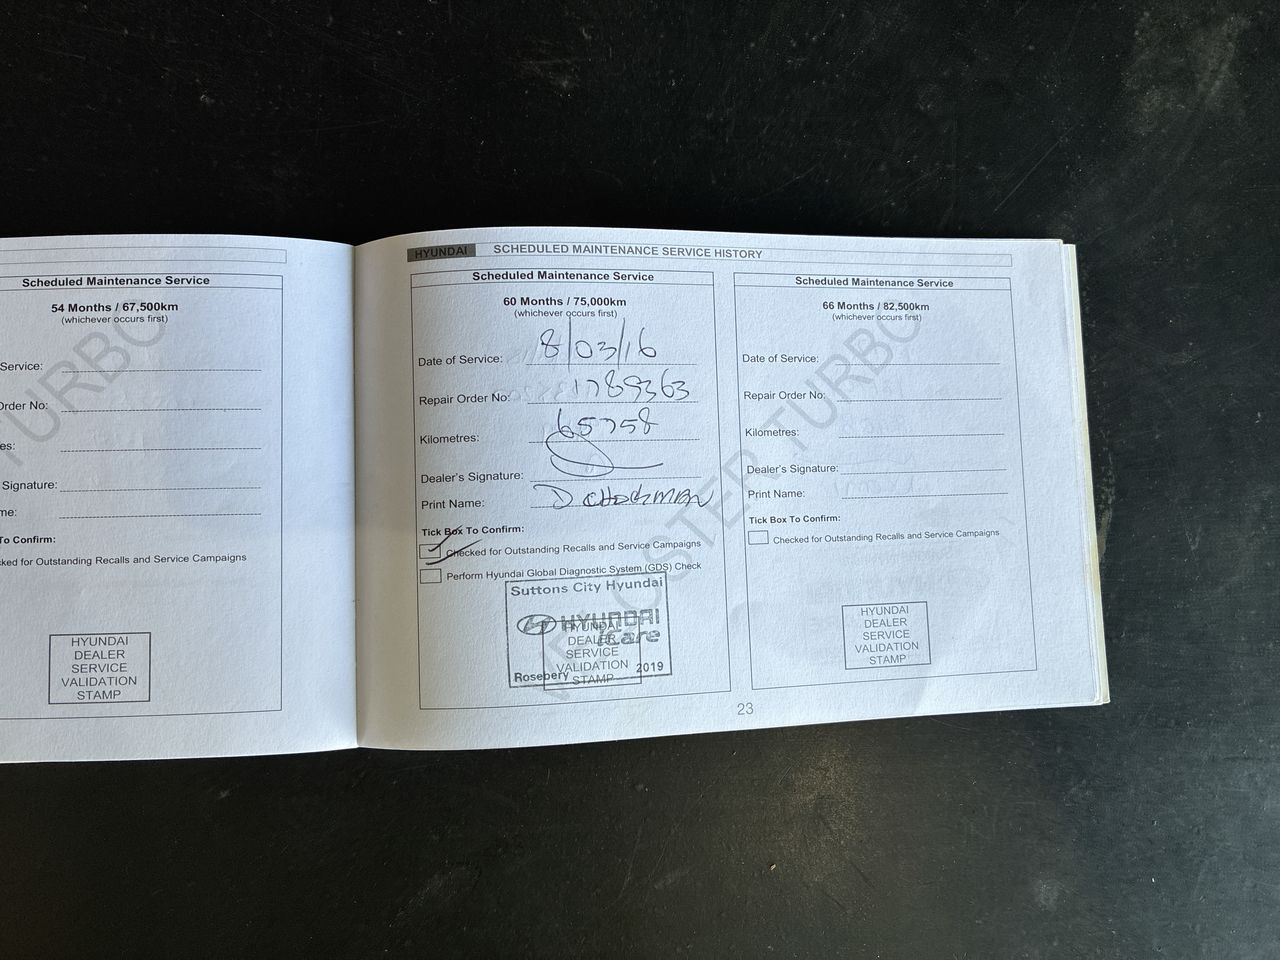 Scheduled Maintenance Service
54 Months / 67,500km
(whichever occurs first)
Service:
Order No:
es:
Signature:
me:
To Confirm:
ked for Outstanding Recalls and Service Campaigns
HYUNDAI
DEALER
SERVICE
VALIDATION
STAMP
HYUNDAI SCHEDULED MAINTENANCE SERVICE HISTORY
Scheduled Maintenance Service
60 Months / 75,000km
(whichever occurs first)
Date of Service: 8/03/16
Repair Order No: 1789363
Kilometres: 65758
Dealer's Signature:
Print Name: D
Tick Box To Confirm:
Checked for Outstanding Recalls and Service Campaigns
Perform Hyundai Global Diagnostic System (GDS) Check
Suttons City Hyundai
HYUNDAI
iCare
Rosebery 2019
HYUNDAI
DEALER
SERVICE
VALIDATION
STAMP
Scheduled Maintenance Service
66 Months / 82,500km
(whichever occurs first)
Date of Service:
Repair Order No:
Kilometres:
Dealer's Signature:
Print Name:
Tick Box To Confirm:
Checked for Outstanding Recalls and Service Campaigns
HYUNDAI
DEALER
SERVICE
VALIDATION
STAMP
VELOSTER TURBO
TURBO
23